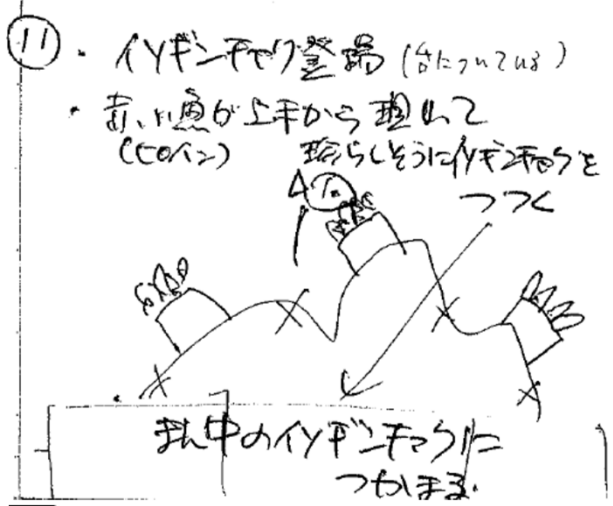 ⑪・イソギンチャク登場(台についている)
・赤い魚が上手から現れて
(ヒロイン) 珍らしそうにイソギンチャクを
つつく
まん中のイソギンチャクに
つかまる.